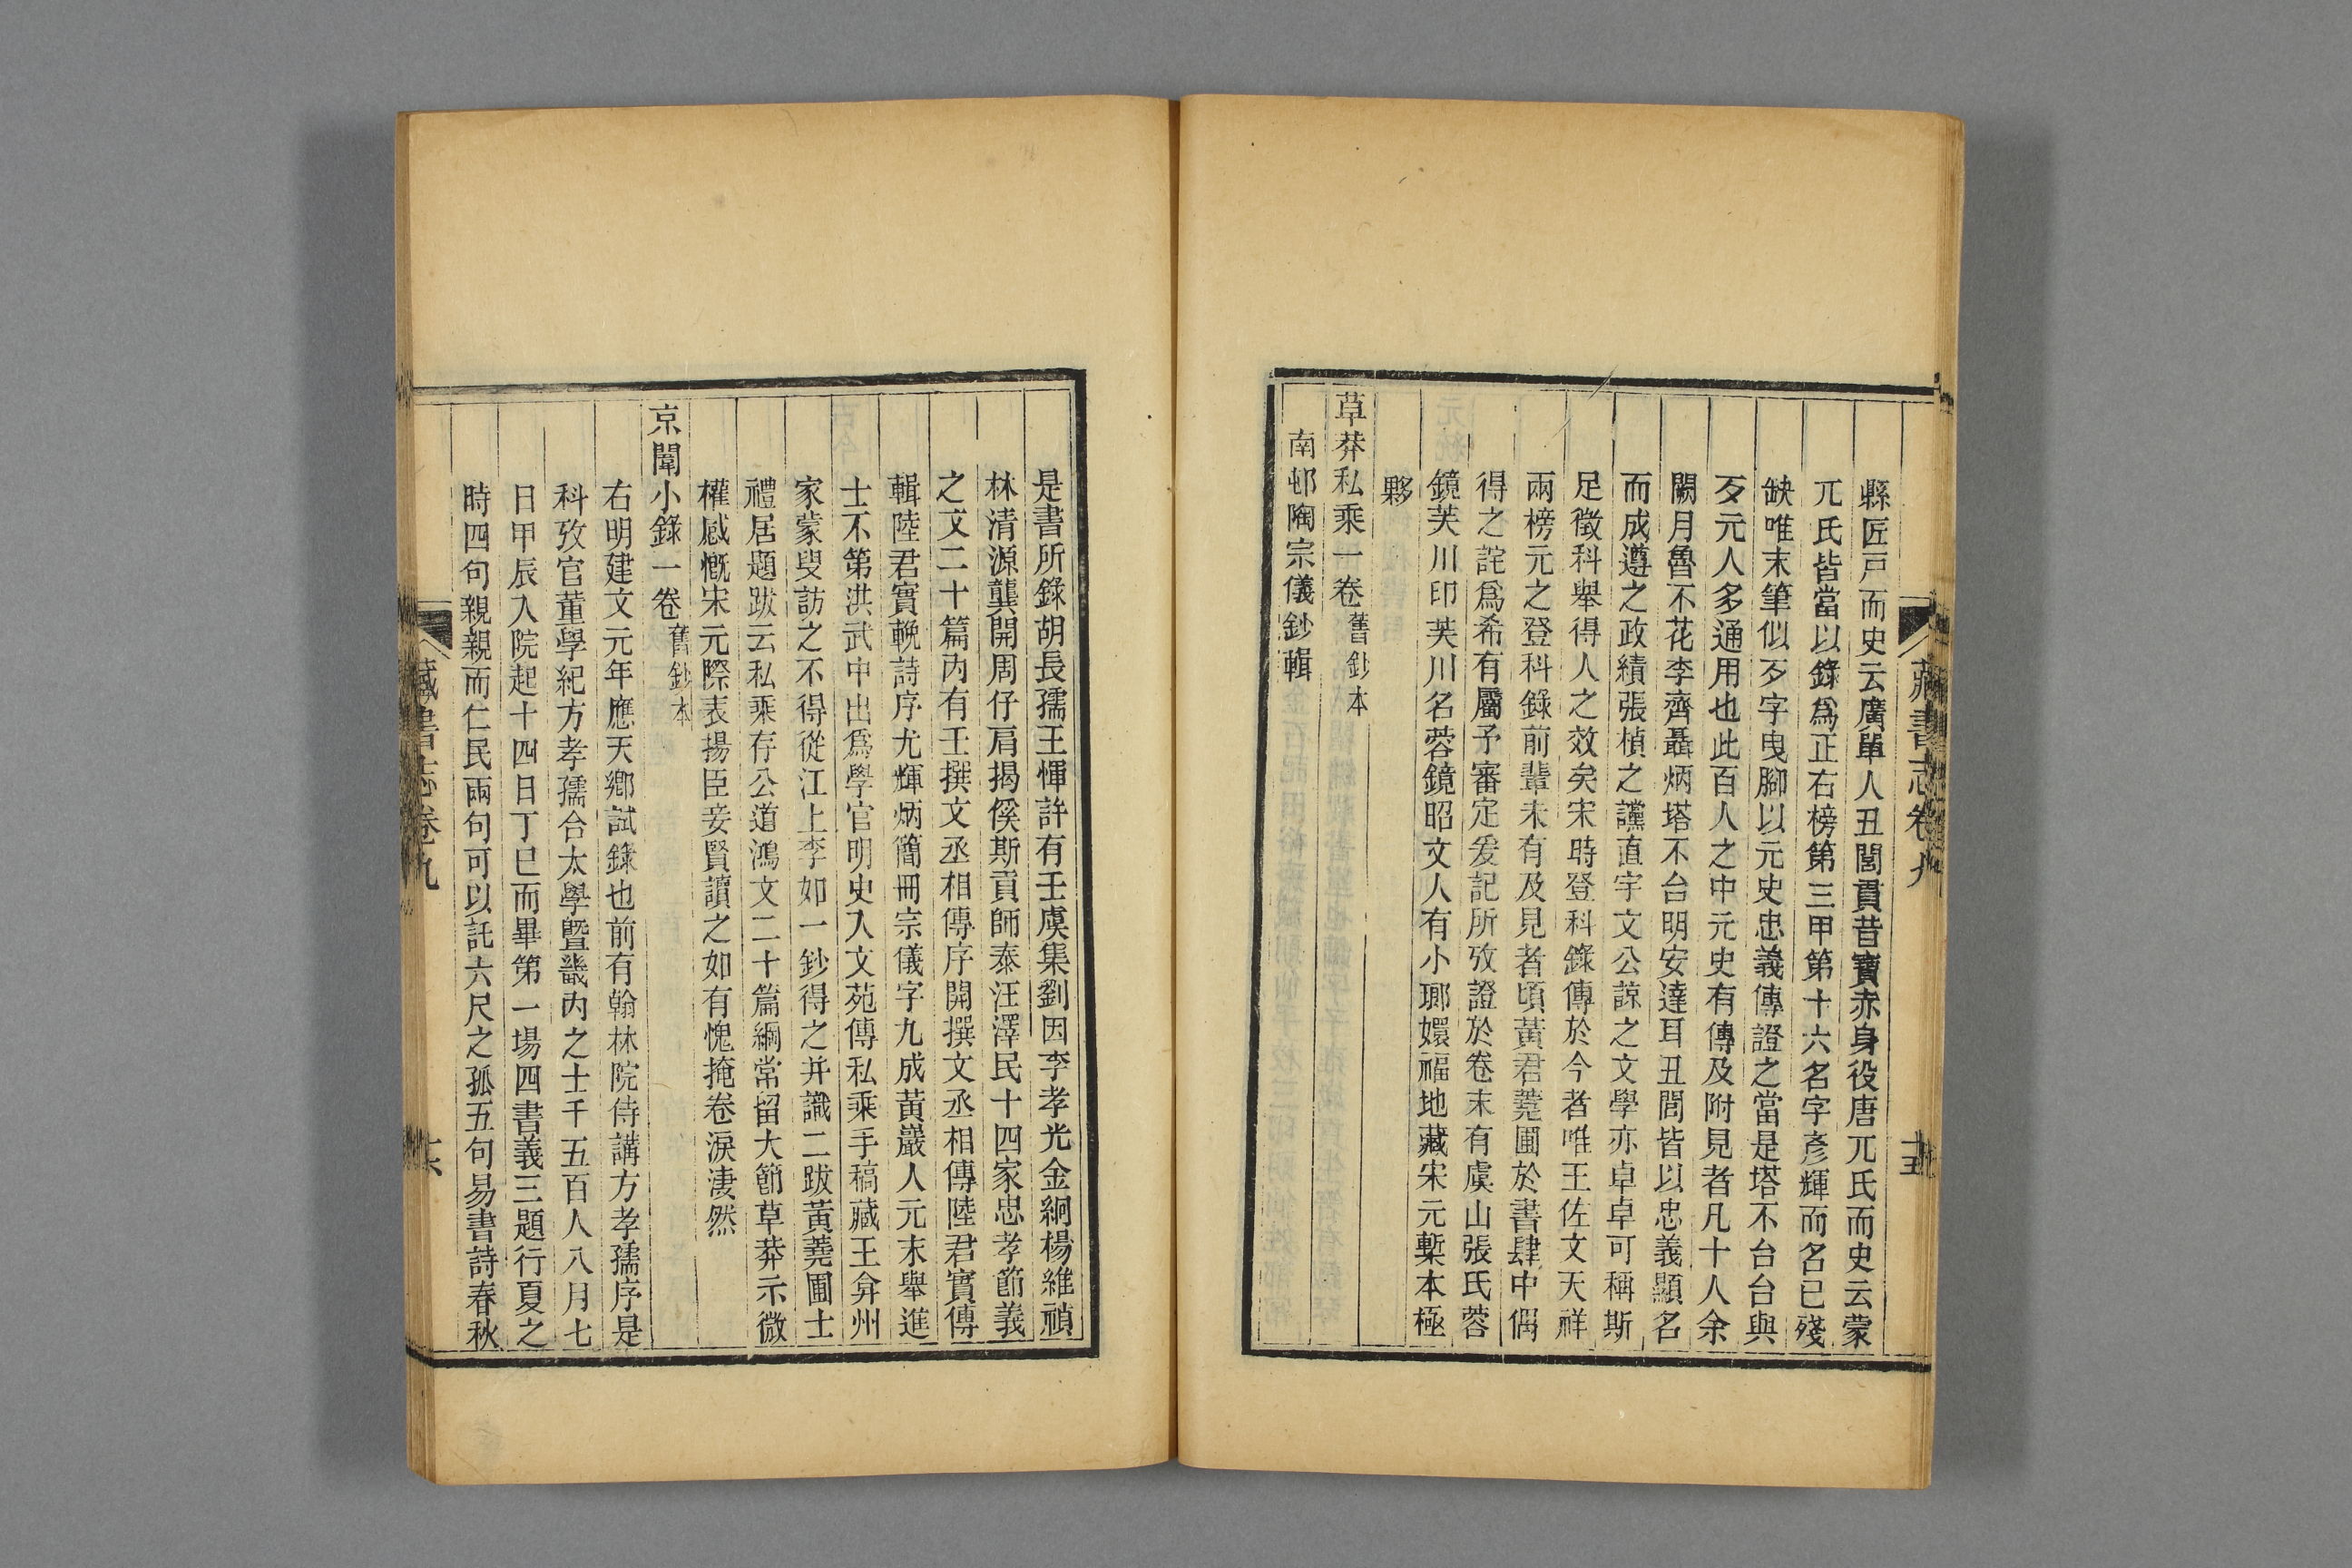 藏書志卷九
十五
縣匠戸而史云廣單人丑閭貫昔寶赤身役唐兀氏而史云蒙
兀氏皆當以錄爲正右榜第三甲第十六名字彥輝而名已殘
缺唯末筆似歹字曳腳以元史忠義傳證之當是塔不台台與
歹元人多通用也此百人之中元史有傳及附見者凡十人余
闕月魯不花李齊聶炳塔不台明安達耳丑閭皆以忠義顯名
而成遵之政績張楨之讜直宇文公諒之文學亦卓卓可稱斯
足徵科舉得人之效矣宋時登科錄傳於今者唯王佐文天祥
兩榜元之登科錄前輩未有及見者頃黃君蕘圃於書肆中偶
得之詫爲希有屬予審定爰記所攷證於卷末有虞山張氏蓉
鏡芙川印芙川名蓉鏡昭文人有小瑯嬛福地藏宋元槧本極
夥
草莽私乘一卷舊鈔本
南邨陶宗儀鈔輯
是書所錄胡長孺王惲許有壬虞集劉因李孝光金絅楊維禎
林清源龔開周仔肩揭傒斯貢師泰汪澤民十四家忠孝節義
之文二十篇內有王撰文丞相傳序開撰文丞相傳陸君實傳
輯陸君實輓詩序尤輝炳簡冊宗儀字九成黃巖人元末舉進
士不第洪武中出爲學官明史入文苑傳私乘手稿藏王弇州
家蒙叟訪之不得從江上李如一鈔得之幷識二跋黃蕘圃士
禮居題跋云私乘存公道鴻文二十篇綱常留大節草莽示微
權感慨宋元際表揚臣妾賢讀之如有愧掩卷淚淒然
京闈小錄一卷舊鈔本
右明建文元年應天鄉試錄也前有翰林院侍講方孝孺序是
科攷官董學紀方孝孺合太學曁畿內之士千五百人八月七
日甲辰入院起十四日丁巳而畢第一場四書義三題行夏之
時四句親親而仁民兩句可以託六尺之孤五句易書詩春秋
藏書志卷九